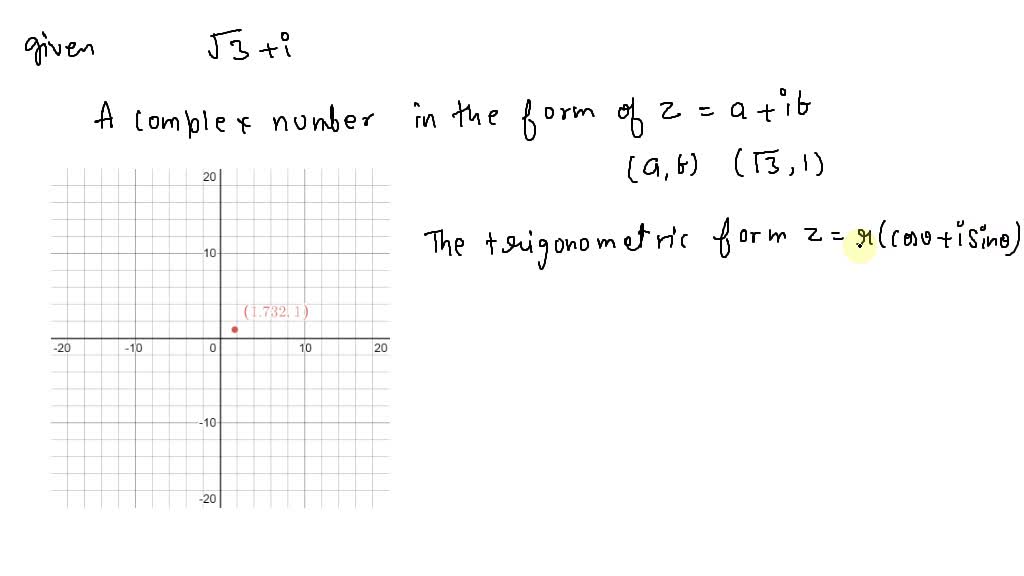 given √3 + i
A complex number in the form of z = a + ib
(a, b) (√3, 1)
The trigonometric form z = r(cosθ + i sinθ)
20
10
(1.732, 1)
-20 -10 0 10 20
-10
-20